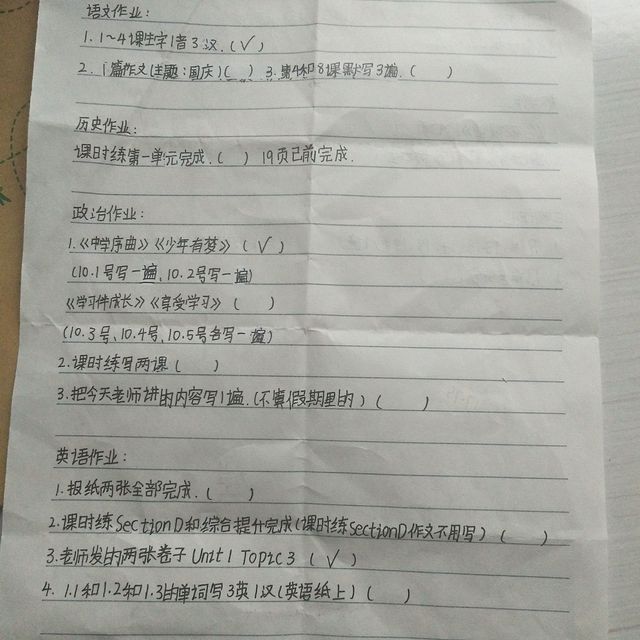 语文作业:
1. 1~4课生字1音3汉.(√)
2. 1篇作文(主题:国庆)( ) 3. 第4和8课默写3遍.( )
历史作业:
课时练第一单元完成.( ) 19页已前完成.
政治作业:
1.《中学序曲》《少年有梦》(√)
(10.1号写一遍、10.2号写一遍)
《学习伴成长》《享受学习》( )
(10.3号、10.4号、10.5号各写一遍)
2.课时练写两课( )
3.把今天老师讲的内容写1遍.(不算假期里的)( )
英语作业:
1.报纸两张全部完成.( )
2.课时练SectionD和综合提升完成(课时练SectionD作文不用写)( )
3.老师发的两张卷子 Unit1 Topic3 (√)
4. 1.1和1.2和1.3的单词写3英1汉(英语纸上)( )